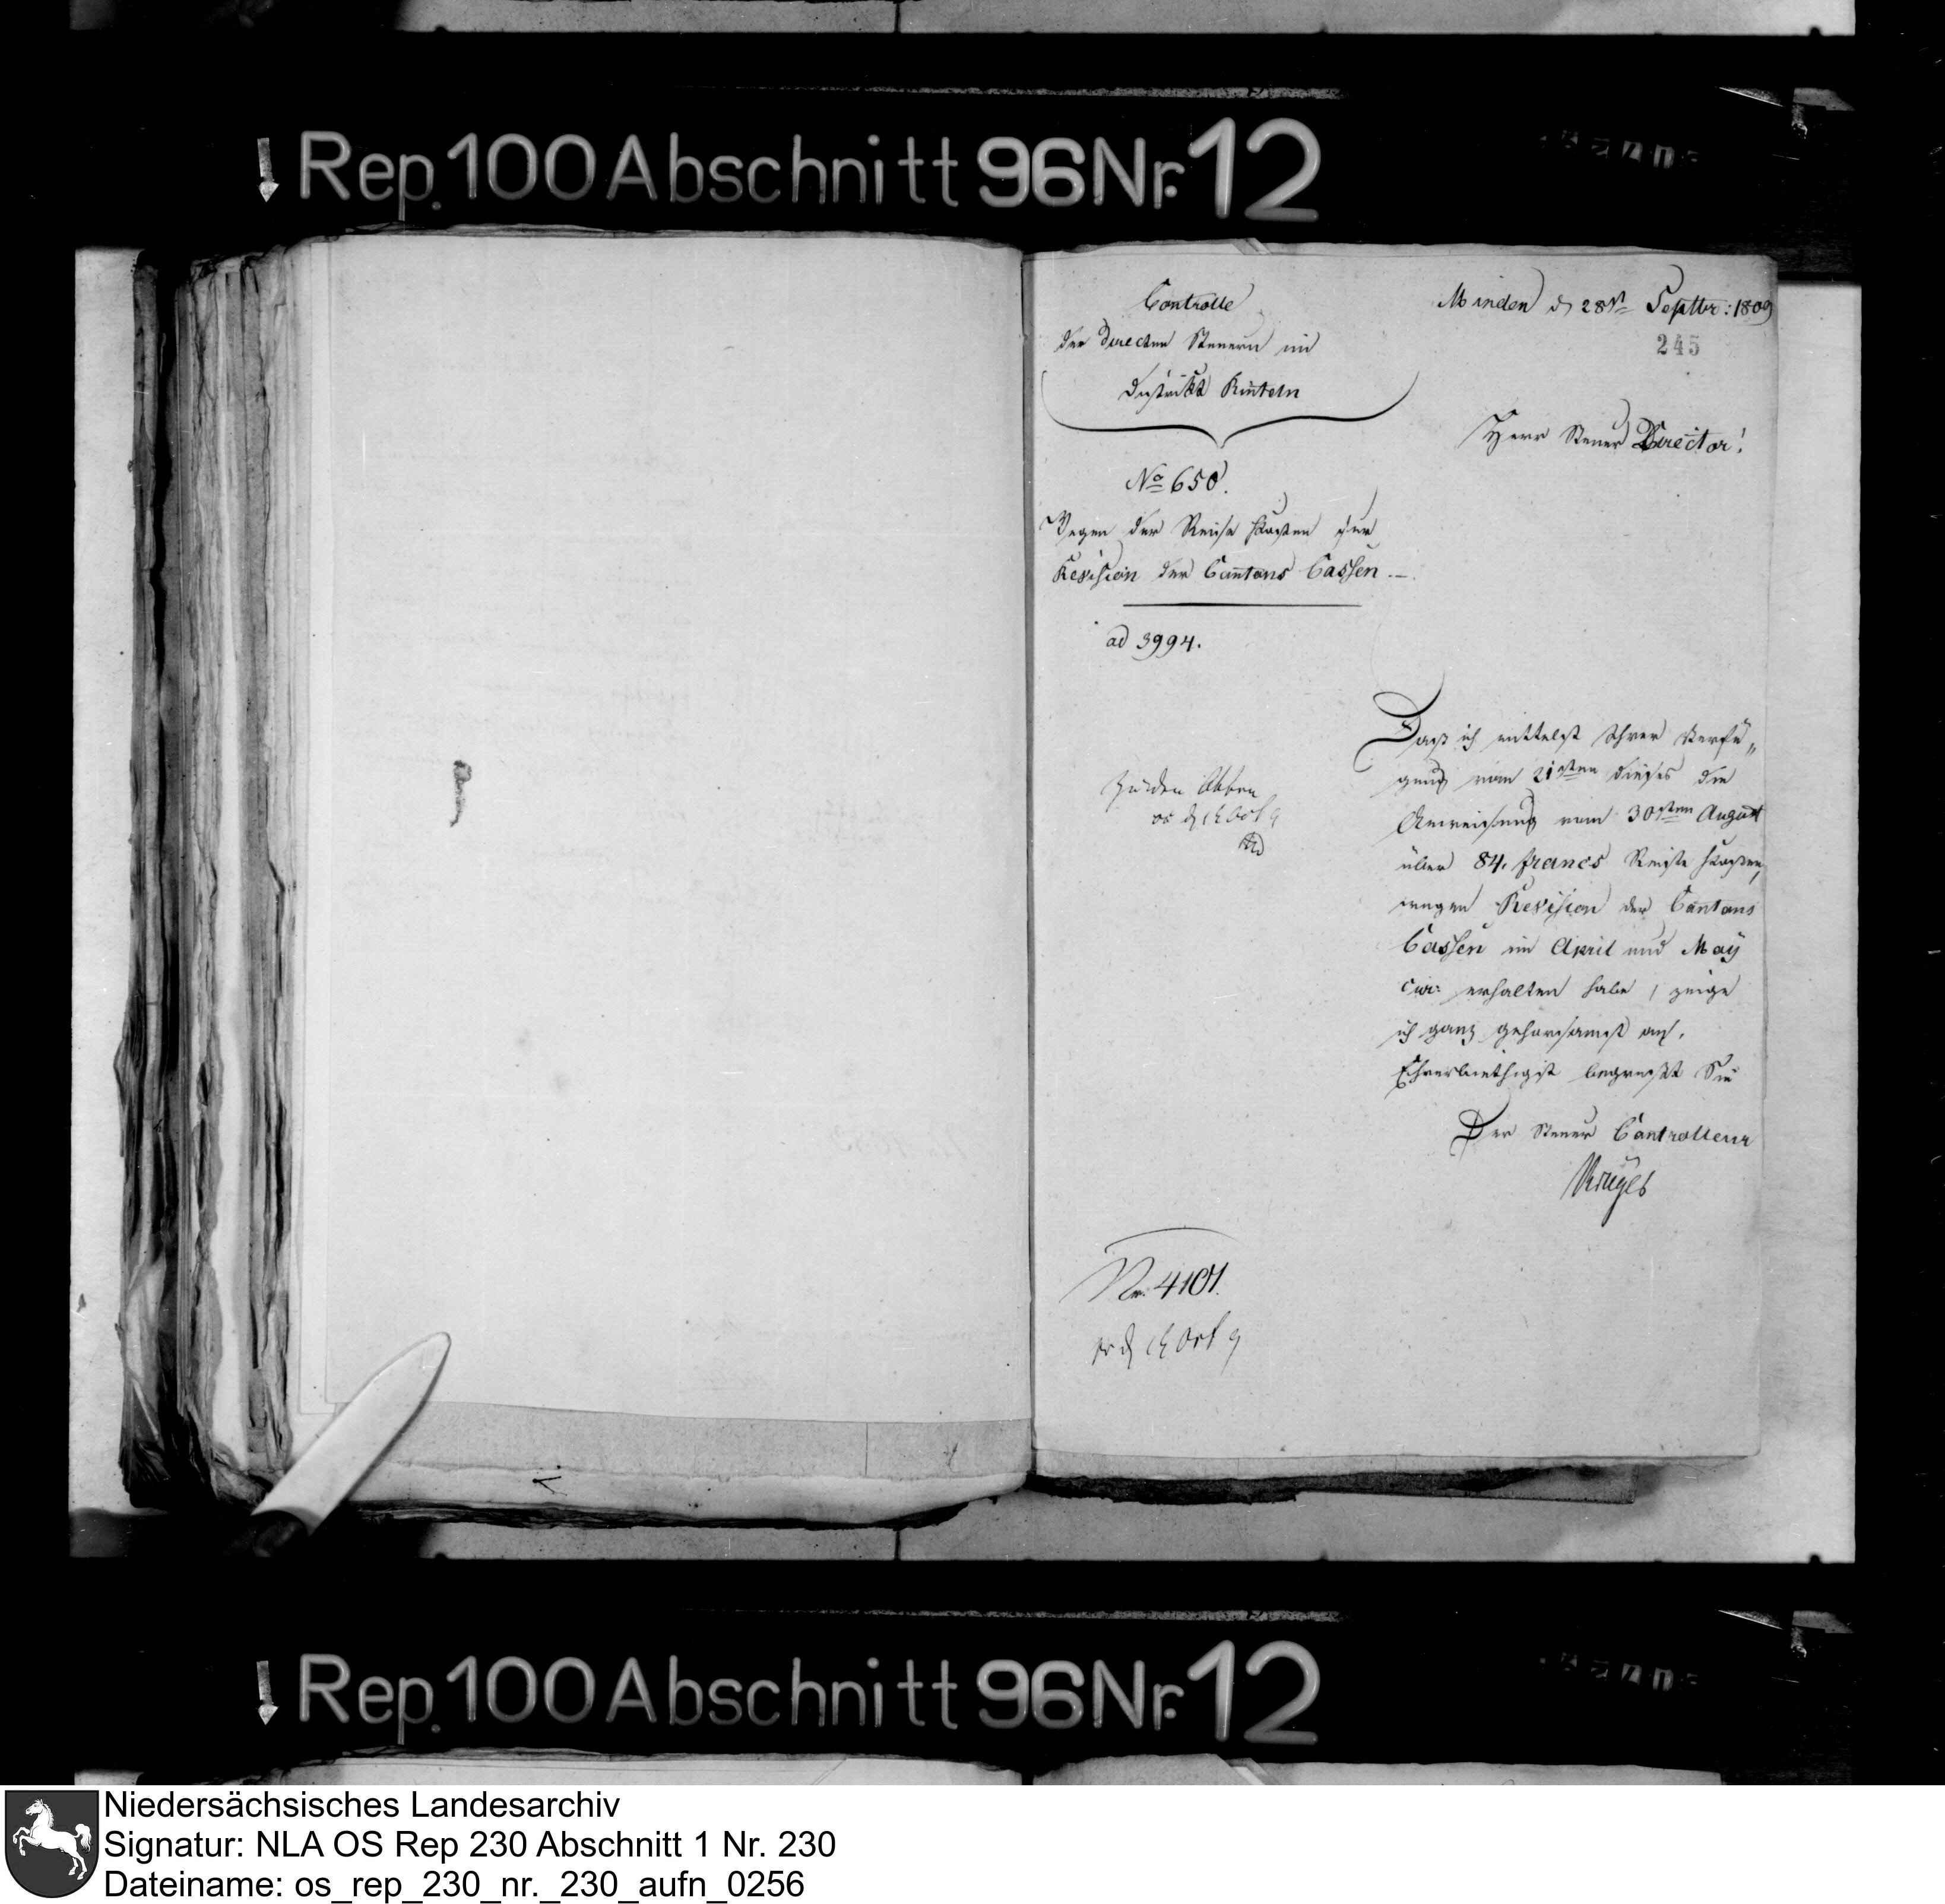 Rep. 100 Abschnitt 96 Nr. 12
Controlle
der directen Steuern im
District Rinteln
Minden d 28t Septbr: 1809
245
Herr Steuer Director!
No 650.
Wegen der Reise Kosten zur
Revision der Cantons Cassen.
ad 3994.
Daß ich mittelst Ihrer Verfü„
gung vom 21sten dieses die
Anweisung vom 30sten August
über 84. francs Reise Kosten,
wegen Revision der Cantons
Cassen im April und May
cur: erhalten habe, zeige
ich ganz gehorsamst an.
Ehrerbiethigst begrüßt Sie
Der Steuer Controlleur
Zu den Akten
Oct 9
Nr. 4101.
Oct 9
Rep. 100 Abschnitt 96 Nr. 12
Niedersächsisches Landesarchiv
Signatur: NLA OS Rep 230 Abschnitt 1 Nr. 230
Dateiname: os_rep_230_nr._230_aufn_0256